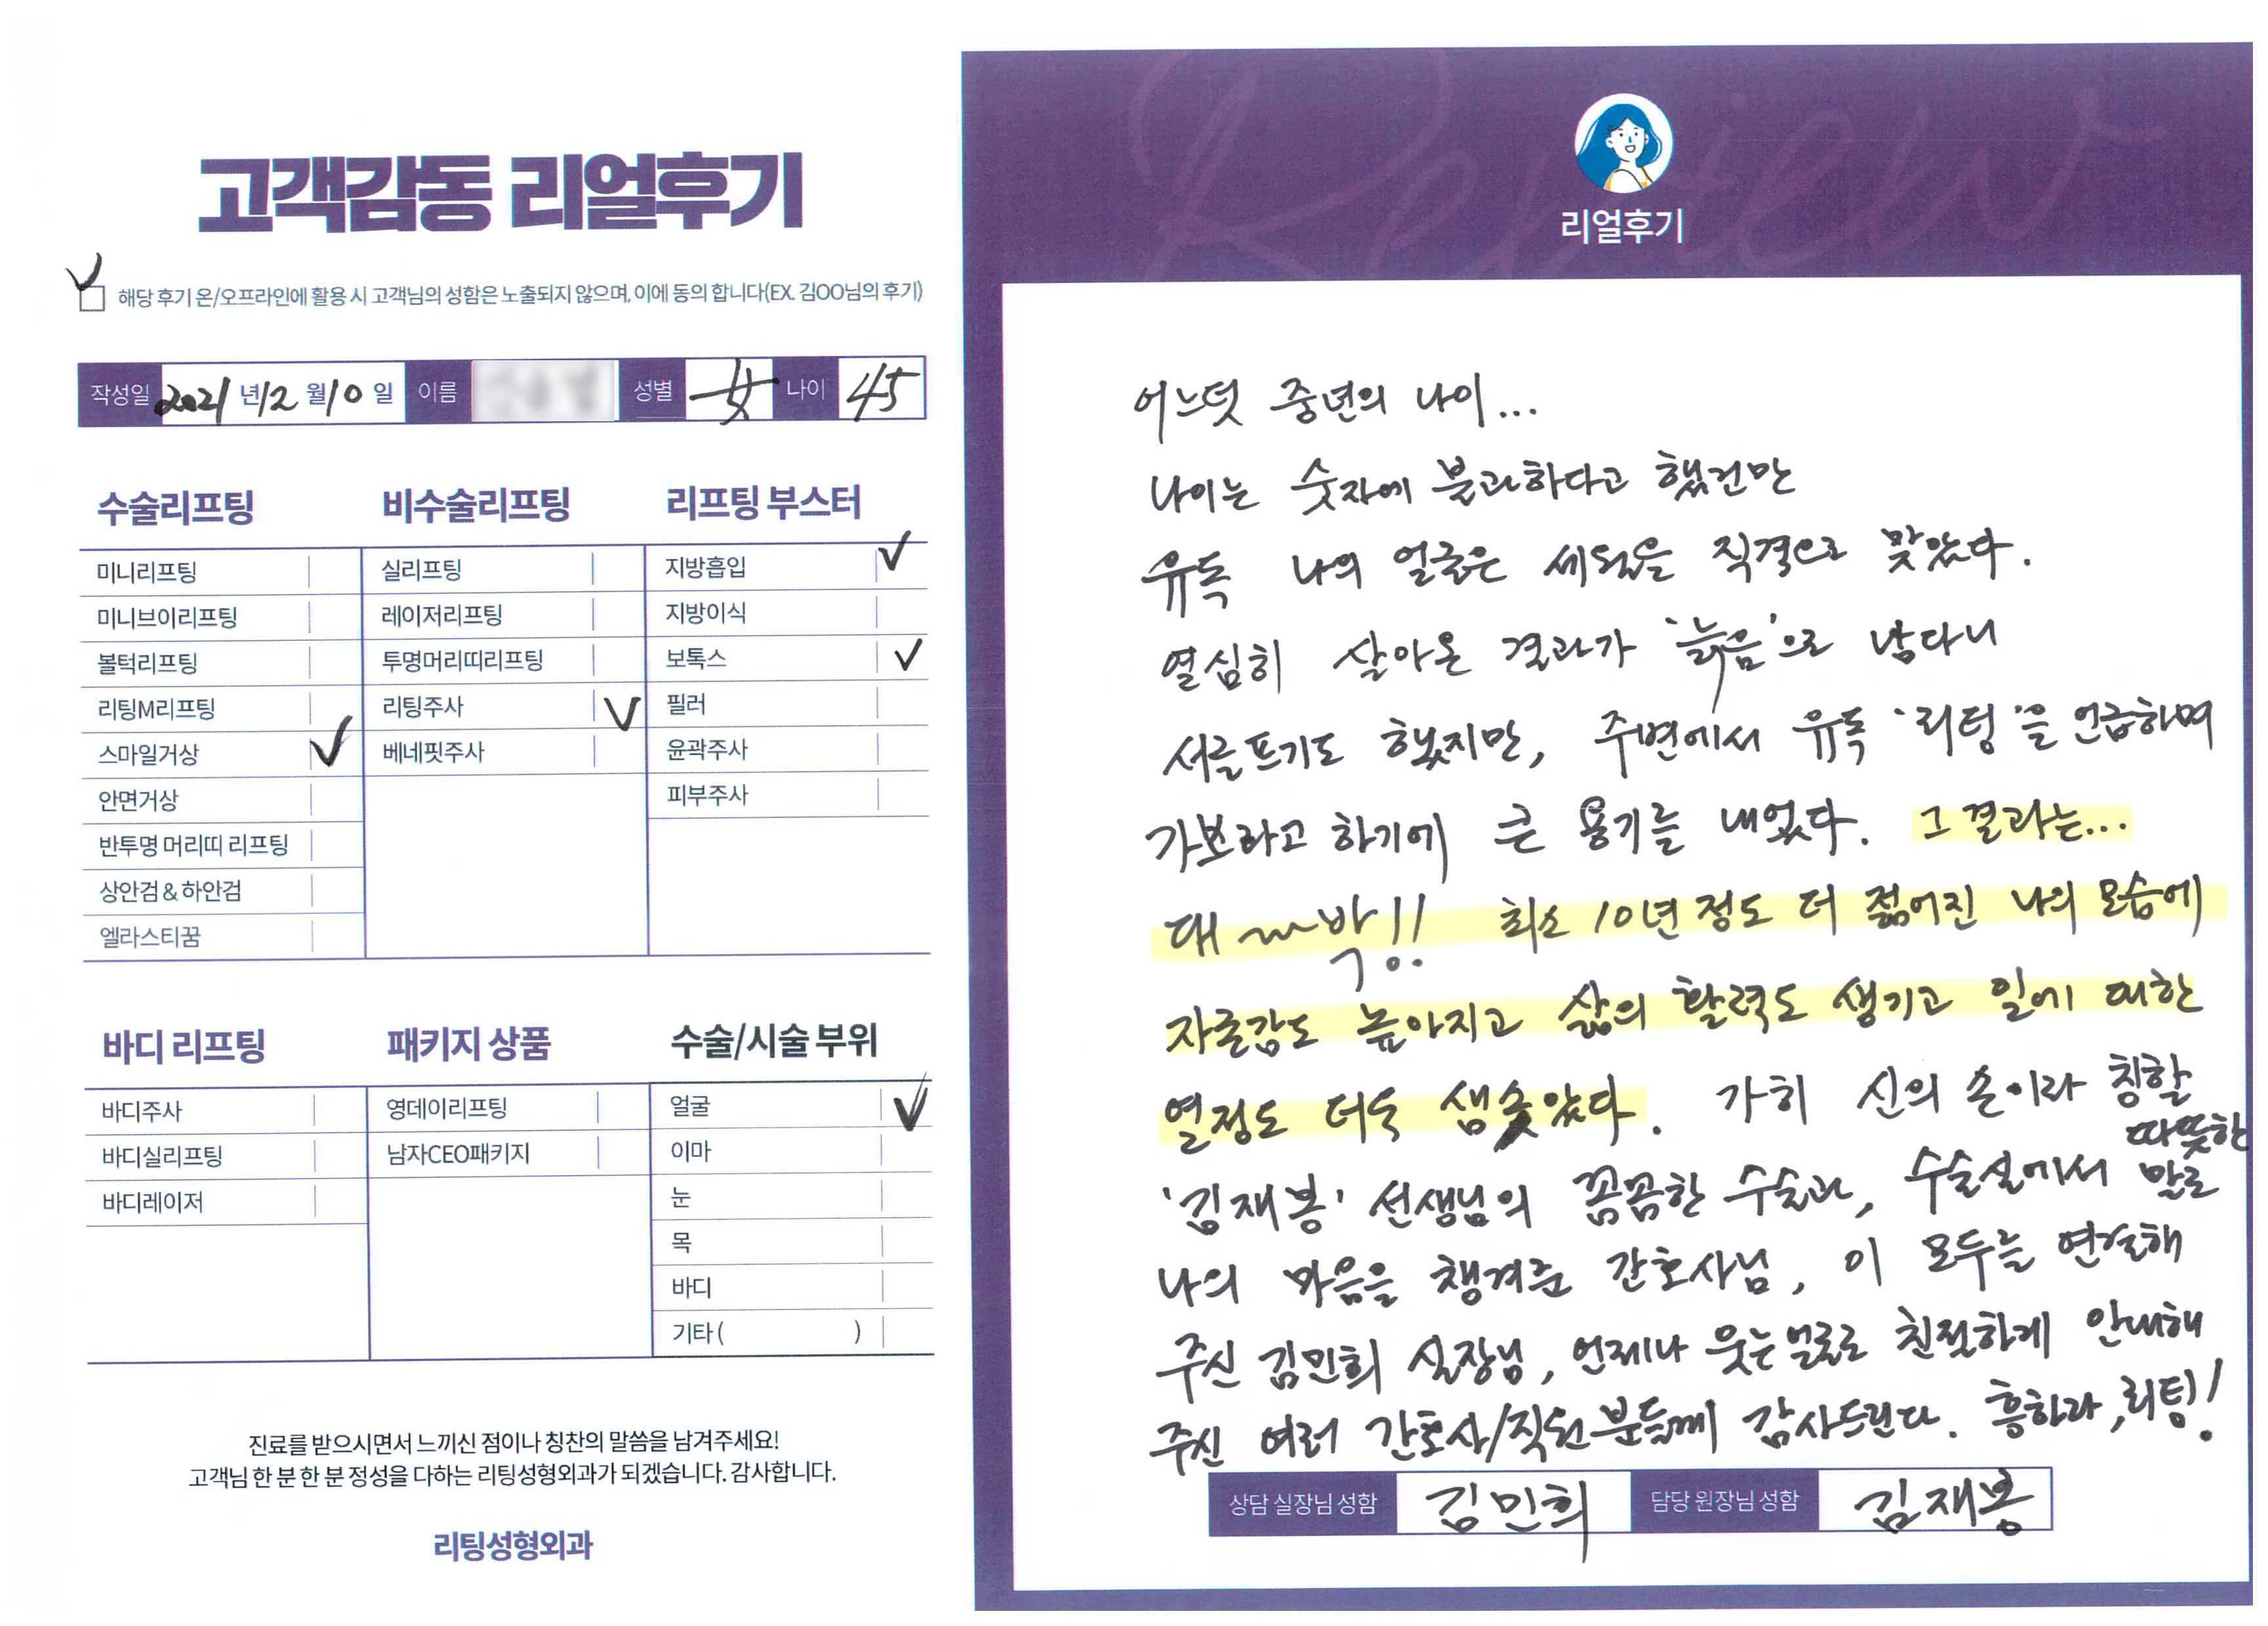 고객감동 리얼후기
해당 후기 온/오프라인에 활용 시 고객님의 성함은 노출되지 않으며, 이에 동의 합니다(EX. 김OO님의 후기)
작성일 2021 년 12 월 10 일 이름 성별 女 나이 45
수술리프팅
미니리프팅
미니브이리프팅
볼턱리프팅
리팅M리프팅
스마일거상
안면거상
반투명 머리띠 리프팅
상안검 & 하안검
엘라스티꿈
비수술리프팅
실리프팅
레이저리프팅
투명머리띠리프팅
리팅주사
베네핏주사
리프팅 부스터
지방흡입
지방이식
보톡스
필러
윤곽주사
피부주사
바디 리프팅
바디주사
바디실리프팅
바디레이저
패키지 상품
영데이리프팅
남자CEO패키지
수술/시술 부위
얼굴
이마
눈
목
바디
기타 ( )
진료를 받으시면서 느끼신 점이나 칭찬의 말씀을 남겨주세요!
고객님 한 분 한 분 정성을 다하는 리팅성형외과가 되겠습니다. 감사합니다.
리팅성형외과
Review
리얼후기
어느덧 중년의 나이...
나이는 숫자에 불과하다고 했건만
유독 나의 얼굴은 세월을 직격으로 맞았다.
열심히 살아온 결과가 '늙음'으로 남다니
서글프기도 했지만, 주변에서 유독 '리팅'을 언급하며
가보라고 하기에 큰 용기를 내었다. 그 결과는...
대~~박!! 최소 10년 정도 더 젊어진 나의 모습에
자존감도 높아지고 삶의 활력도 생기고 일에 대한
열정도 더욱 샘솟았다. 가히 신의 손이라 칭할
'김재봉' 선생님의 꼼꼼한 수술과, 수술실에서 따뜻한 말로
나의 마음을 챙겨준 간호사님, 이 모두를 연결해
주신 김민희 실장님, 언제나 웃는 얼굴로 친절하게 안내해
주신 여러 간호사/직원분들께 감사드린다. 흥하라, 리팅!
상담 실장님 성함 김민희 담당 원장님 성함 김재봉